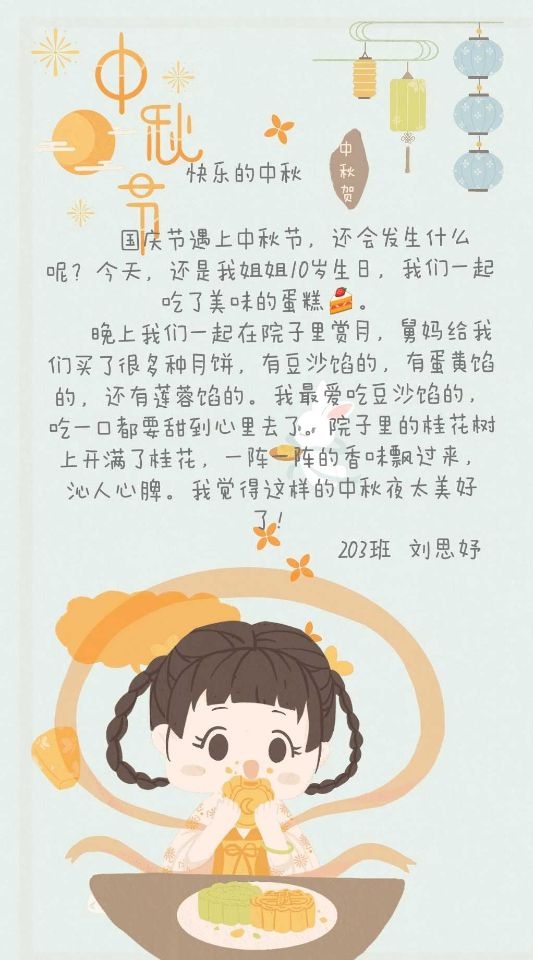 中秋节
快乐的中秋
中秋贺
国庆节遇上中秋节，还会发生什么
呢？今天，还是我姐姐10岁生日，我们一起
吃了美味的蛋糕🍰。
晚上我们一起在院子里赏月，舅妈给我
们买了很多种月饼，有豆沙馅的，有蛋黄馅
的，还有莲蓉馅的。我最爱吃豆沙馅的，
吃一口都要甜到心里去了。院子里的桂花树
上开满了桂花，一阵一阵的香味飘过来，
沁人心脾。我觉得这样的中秋夜太美好
了！
203班 刘思妤